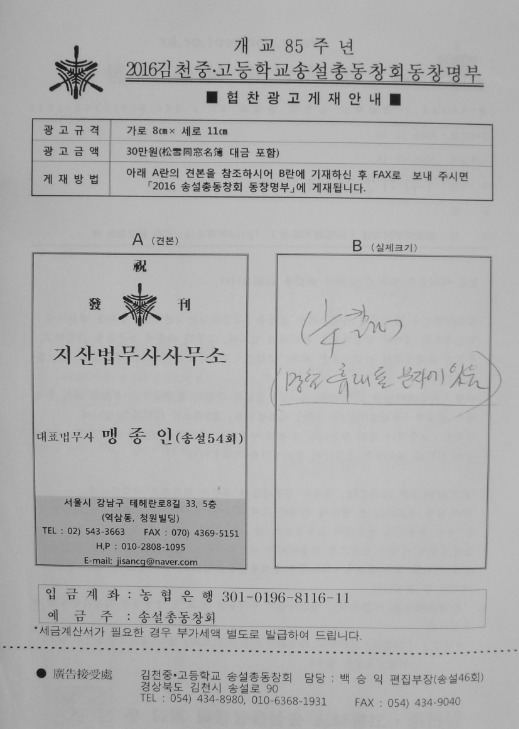 개교 85주년
2016김천중·고등학교송설총동창회동창명부
■ 협찬광고게재안내 ■
광고규격 가로 8㎝× 세로 11㎝
광고금액 30만원(松雪同窓名簿 대금 포함)
게재방법 아래 A란의 견본을 참조하시어 B란에 기재하신 후 FAX로 보내 주시면
「2016 송설총동창회 동창명부」에 게재됩니다.
A (견본)
B (실제크기)
祝
發 刊
지산법무사사무소
대표법무사 맹종인(송설54회)
서울시 강남구 테헤란로8길 33, 5층
(역삼동, 청원빌딩)
TEL : 02) 543-3663 FAX : 070) 4369-5151
H,P : 010-2808-1095
E-mail: jisancg@naver.com
휴대폰 문자에 있음)
입금계좌 : 농협은행 301-0196-8116-11
예금주 : 송설총동창회
*세금계산서가 필요한 경우 부가세액 별도로 발급하여 드립니다.
● 廣告接受處 김천중·고등학교 송설총동창회 담당 : 백승익 편집부장(송설46회)
경상북도 김천시 송설로 90
TEL : 054) 434-8980, 010-6368-1931 FAX : 054) 434-9040